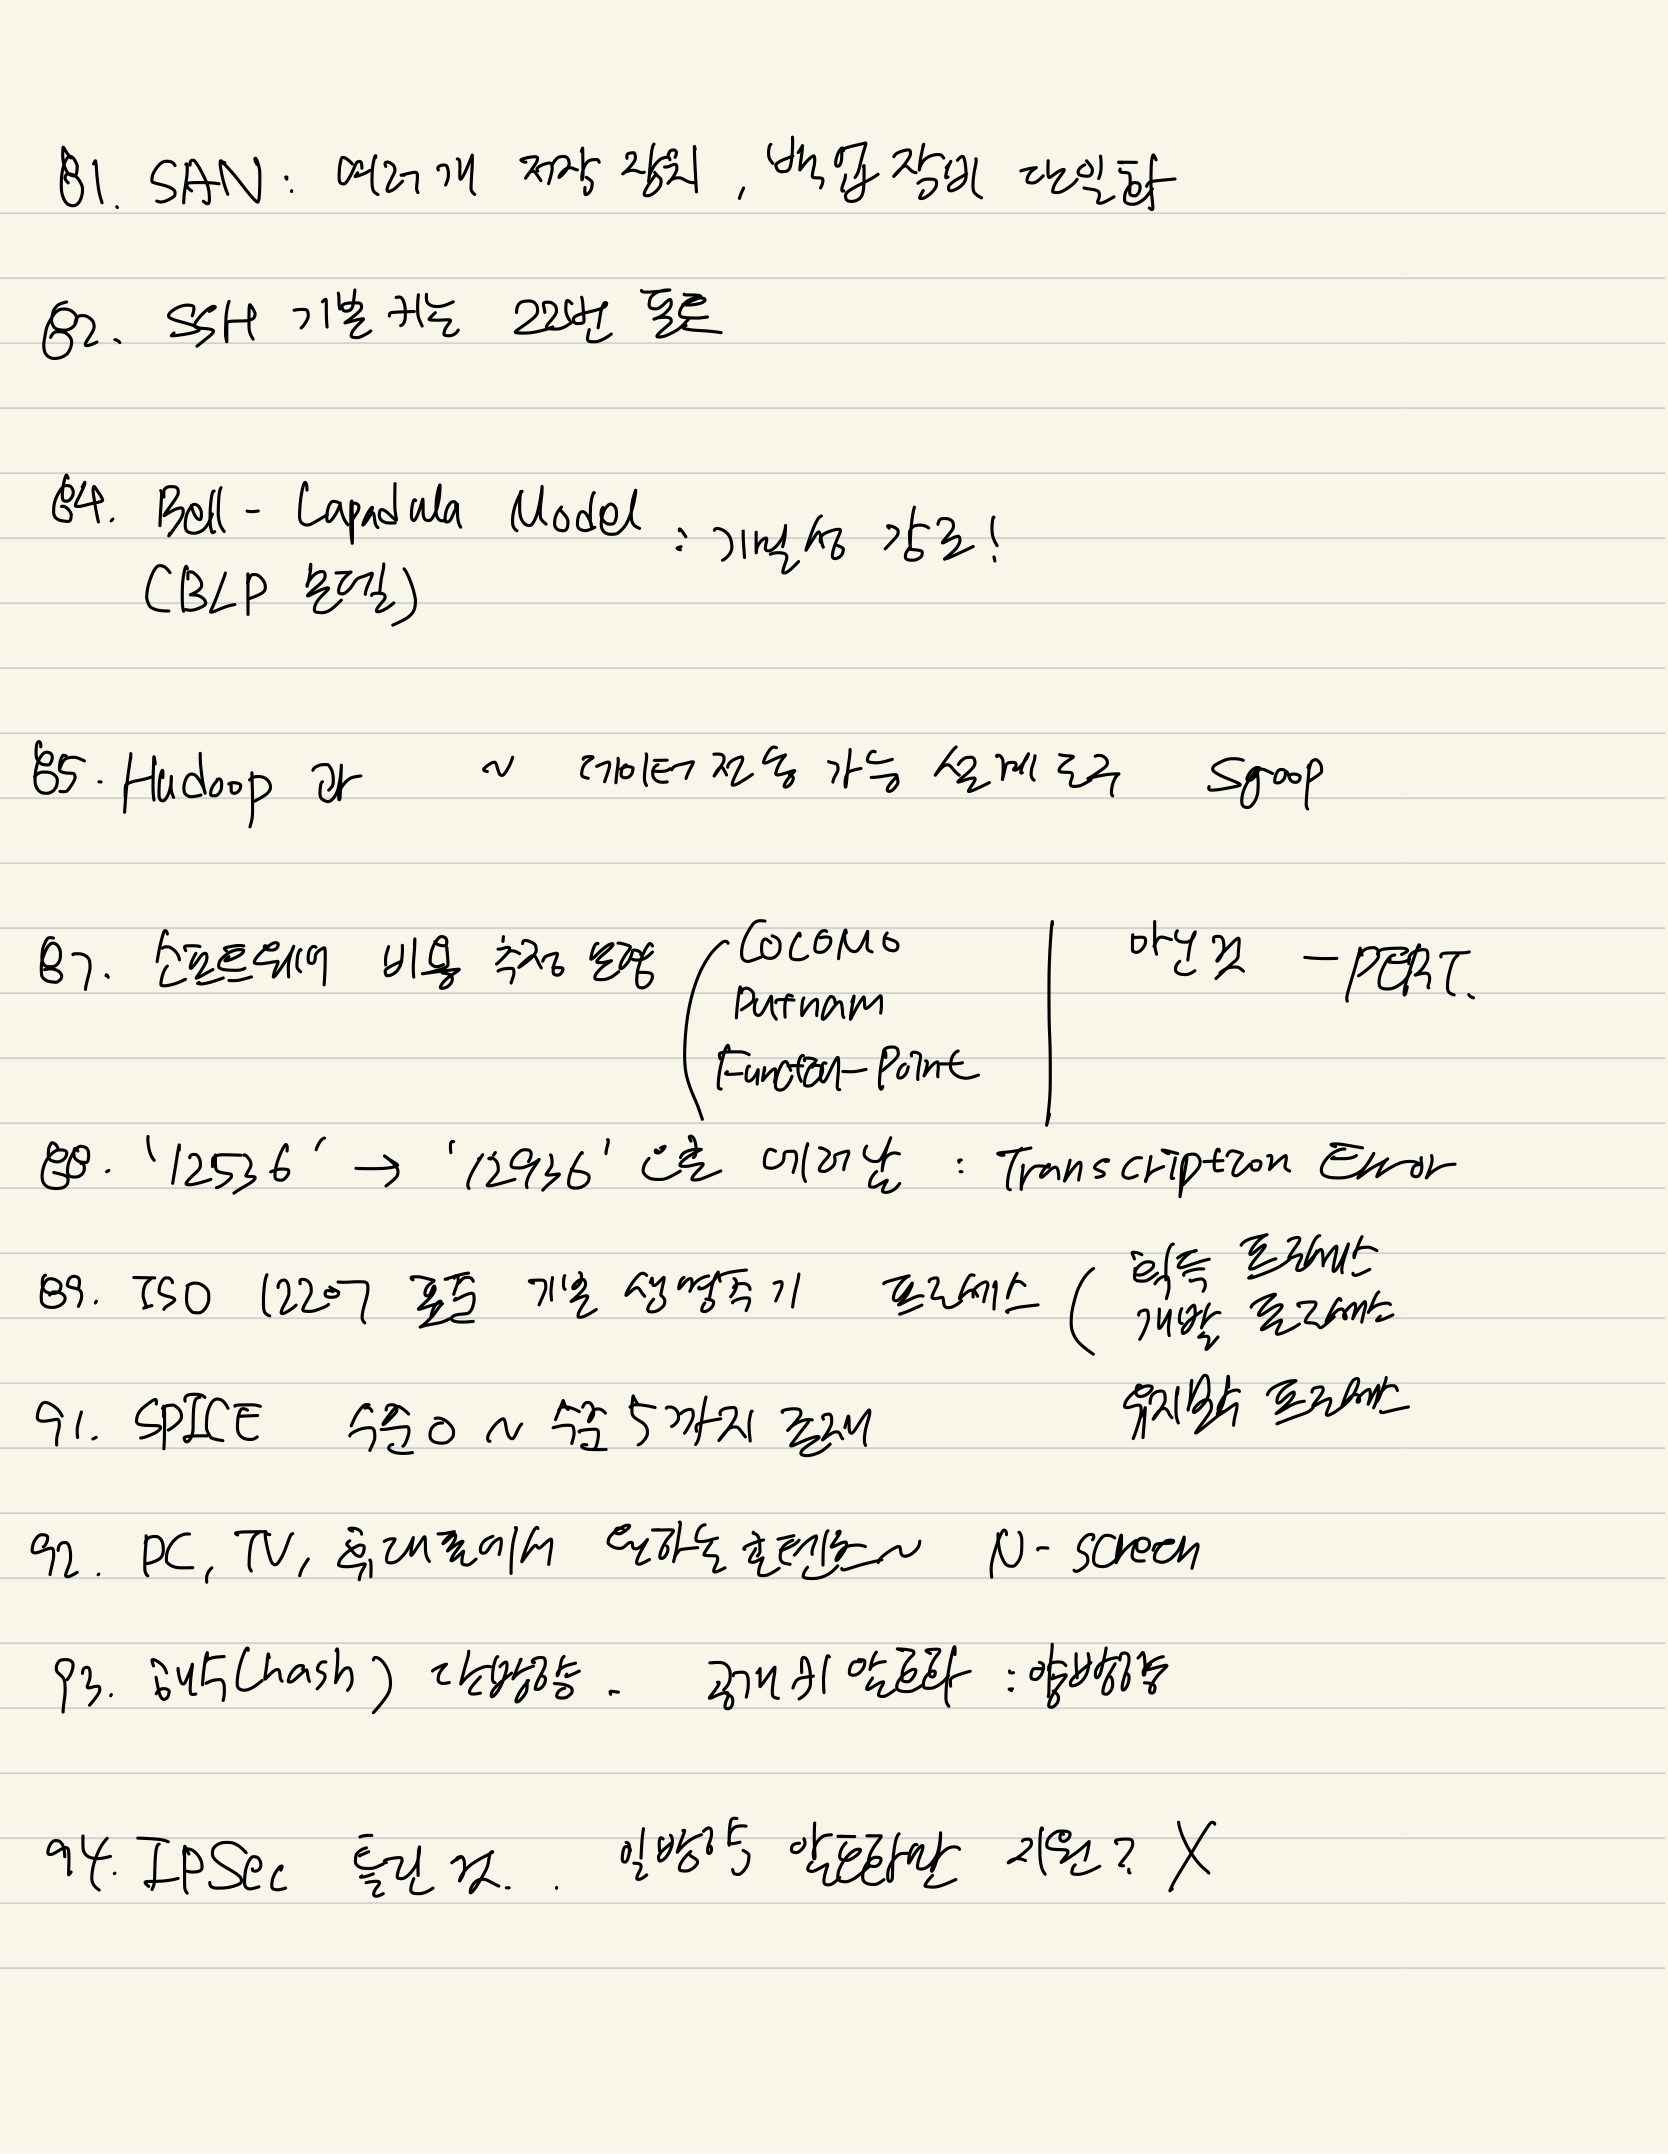 81. SAN : 여러개 저장 장치, 백업 장비 단일화
82. SSH 기본 키는 22번 포트
84. Bell - Lapadula Model : 기밀성 강조!
(BLP 모델)
85. Hadoop 과 ~ 데이터 전송 가능 설계 도구 Sqoop
87. 소프트웨어 비용 추정 모형 ( COCOMO | 아닌 것 - PERT.
Putnam
Function-Point
88. '12536' → '12936' 으로 에러남 : Transcription Error
89. ISO 12207 표준 기본 생명주기 프로세스 ( 획득 프로세스
개발 프로세스
유지보수 프로세스
91. SPICE 수준 0 ~ 수준 5까지 존재
92. PC, TV, 휴대폰에서 원하는 콘텐츠~ N-screen
93. 해쉬(hash) 단방향. 공개키 암호화 : 양방향
94. IPSec 틀린 것. . 일방향 암호화만 지원? X